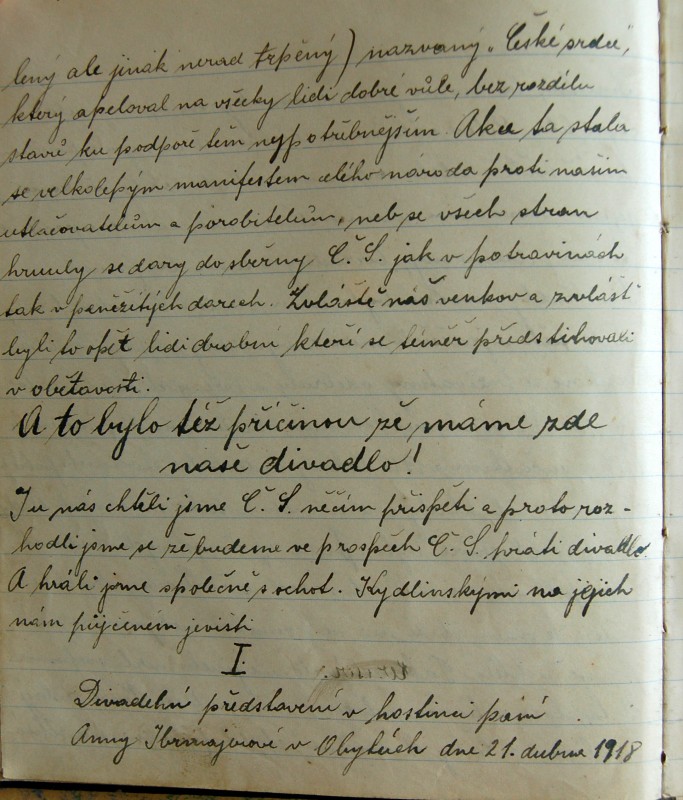 lený ale jinák nerad trpěný) nazvaný „České srdce",
který apeloval na všecky lidi dobré vůle, bez rozdílu
stavů ku podpoře těm nejpotřebnějším. Akce ta stala
se velkolepým manifestem celého národa proti našim
utlačovatelům a porobitelům, neb se všech stran
hrnuly se dary do sběrny Č. S. jak v potravinách
tak v peněžitých darech. Zvláště náš venkov a zvlášť
byli to opět lidi drobní kteří se téměř předstihovali
v obětavosti.
A to bylo též příčinou že máme zde
naše divadlo!
I u nás chtěli jsme Č. S. něčím přispěti a proto roz-
hodli jsme se že budeme ve prospěch Č. S. hráti divadlo.
A hráli jsme společně s ochot. Kydlinskými na jejich
nám půjčeném jevišti
I.
Divadelní představení v hostinci paní
Anny v Obytcích dne 21. dubna 1918